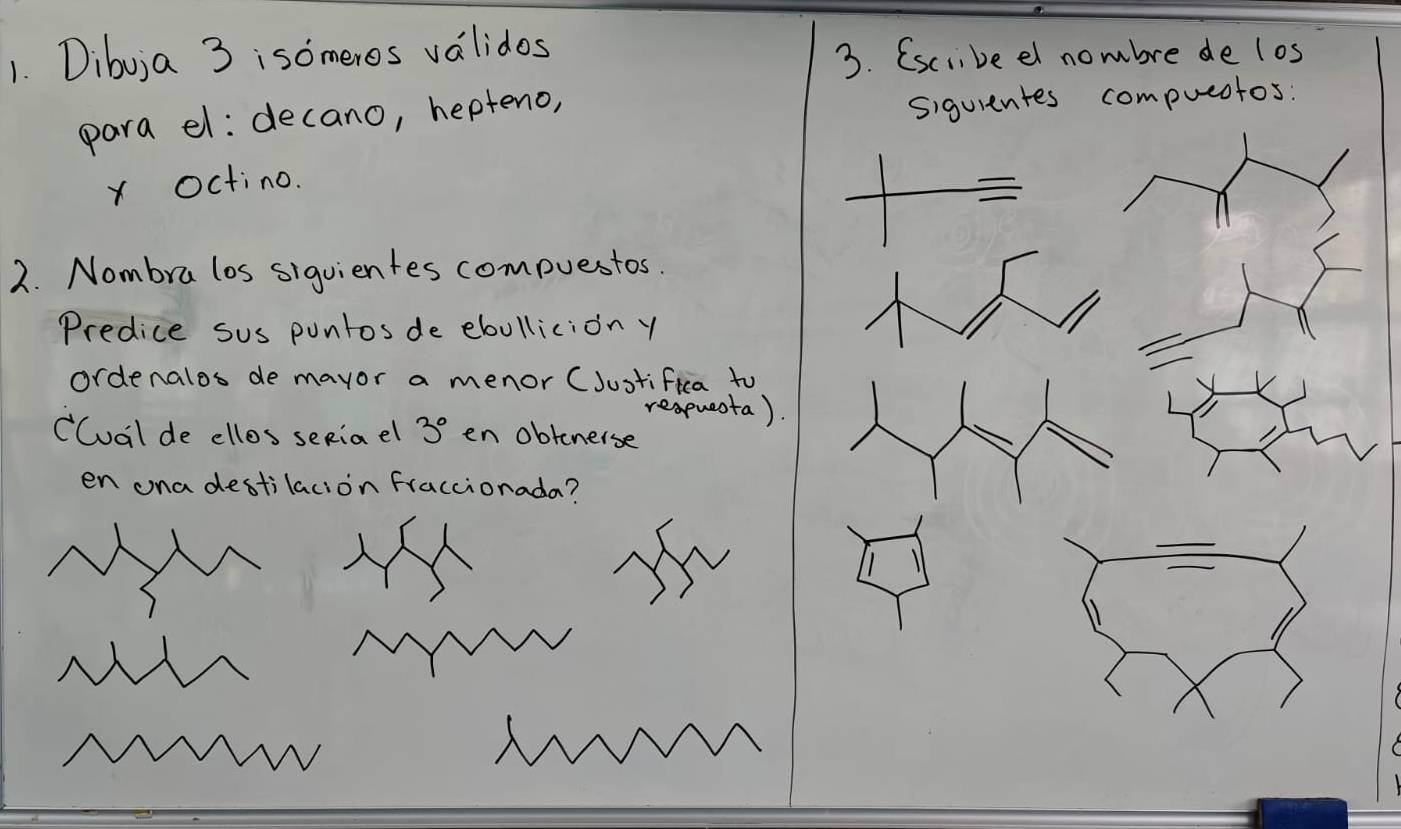 1. Dibuja 3 isómeros válidos
para el: decano, hepteno,
y octino.
2. Nombra los siguientes compuestos.
Predice sus puntos de ebullición y
ordenalos de mayor a menor (Justifica tu
respuesta).
¿Cuál de ellos sería el 3º en obtenerse
en una destilación fraccionada?
3. Escribe el nombre de los
siguientes compuestos: